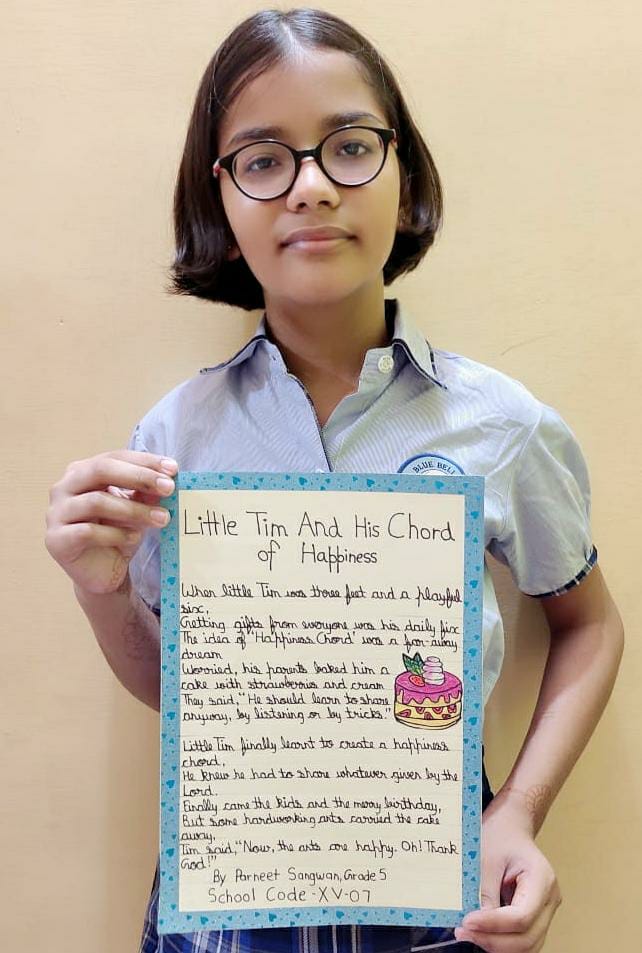 BLUE BELL
Little Tim And His Chord
of Happiness
When little Tim was three feet and a playful
six,
Getting gifts from everyone was his daily fix
The idea of 'Happiness Chord' was a far-away
dream
Worried, his parents baked him a
cake with strawberries and cream
They said, "He should learn to share
anyway, by listening or by tricks."
Little Tim finally learnt to create a happiness
chord,
He knew he had to share whatever given by the
Lord.
Finally came the kids and the merry birthday,
But some hardworking ants carried the cake
away,
Tim said, "Now, the ants are happy. Oh! Thank
God!"
By Parneet Sangwan, Grade 5
School Code -XV-07